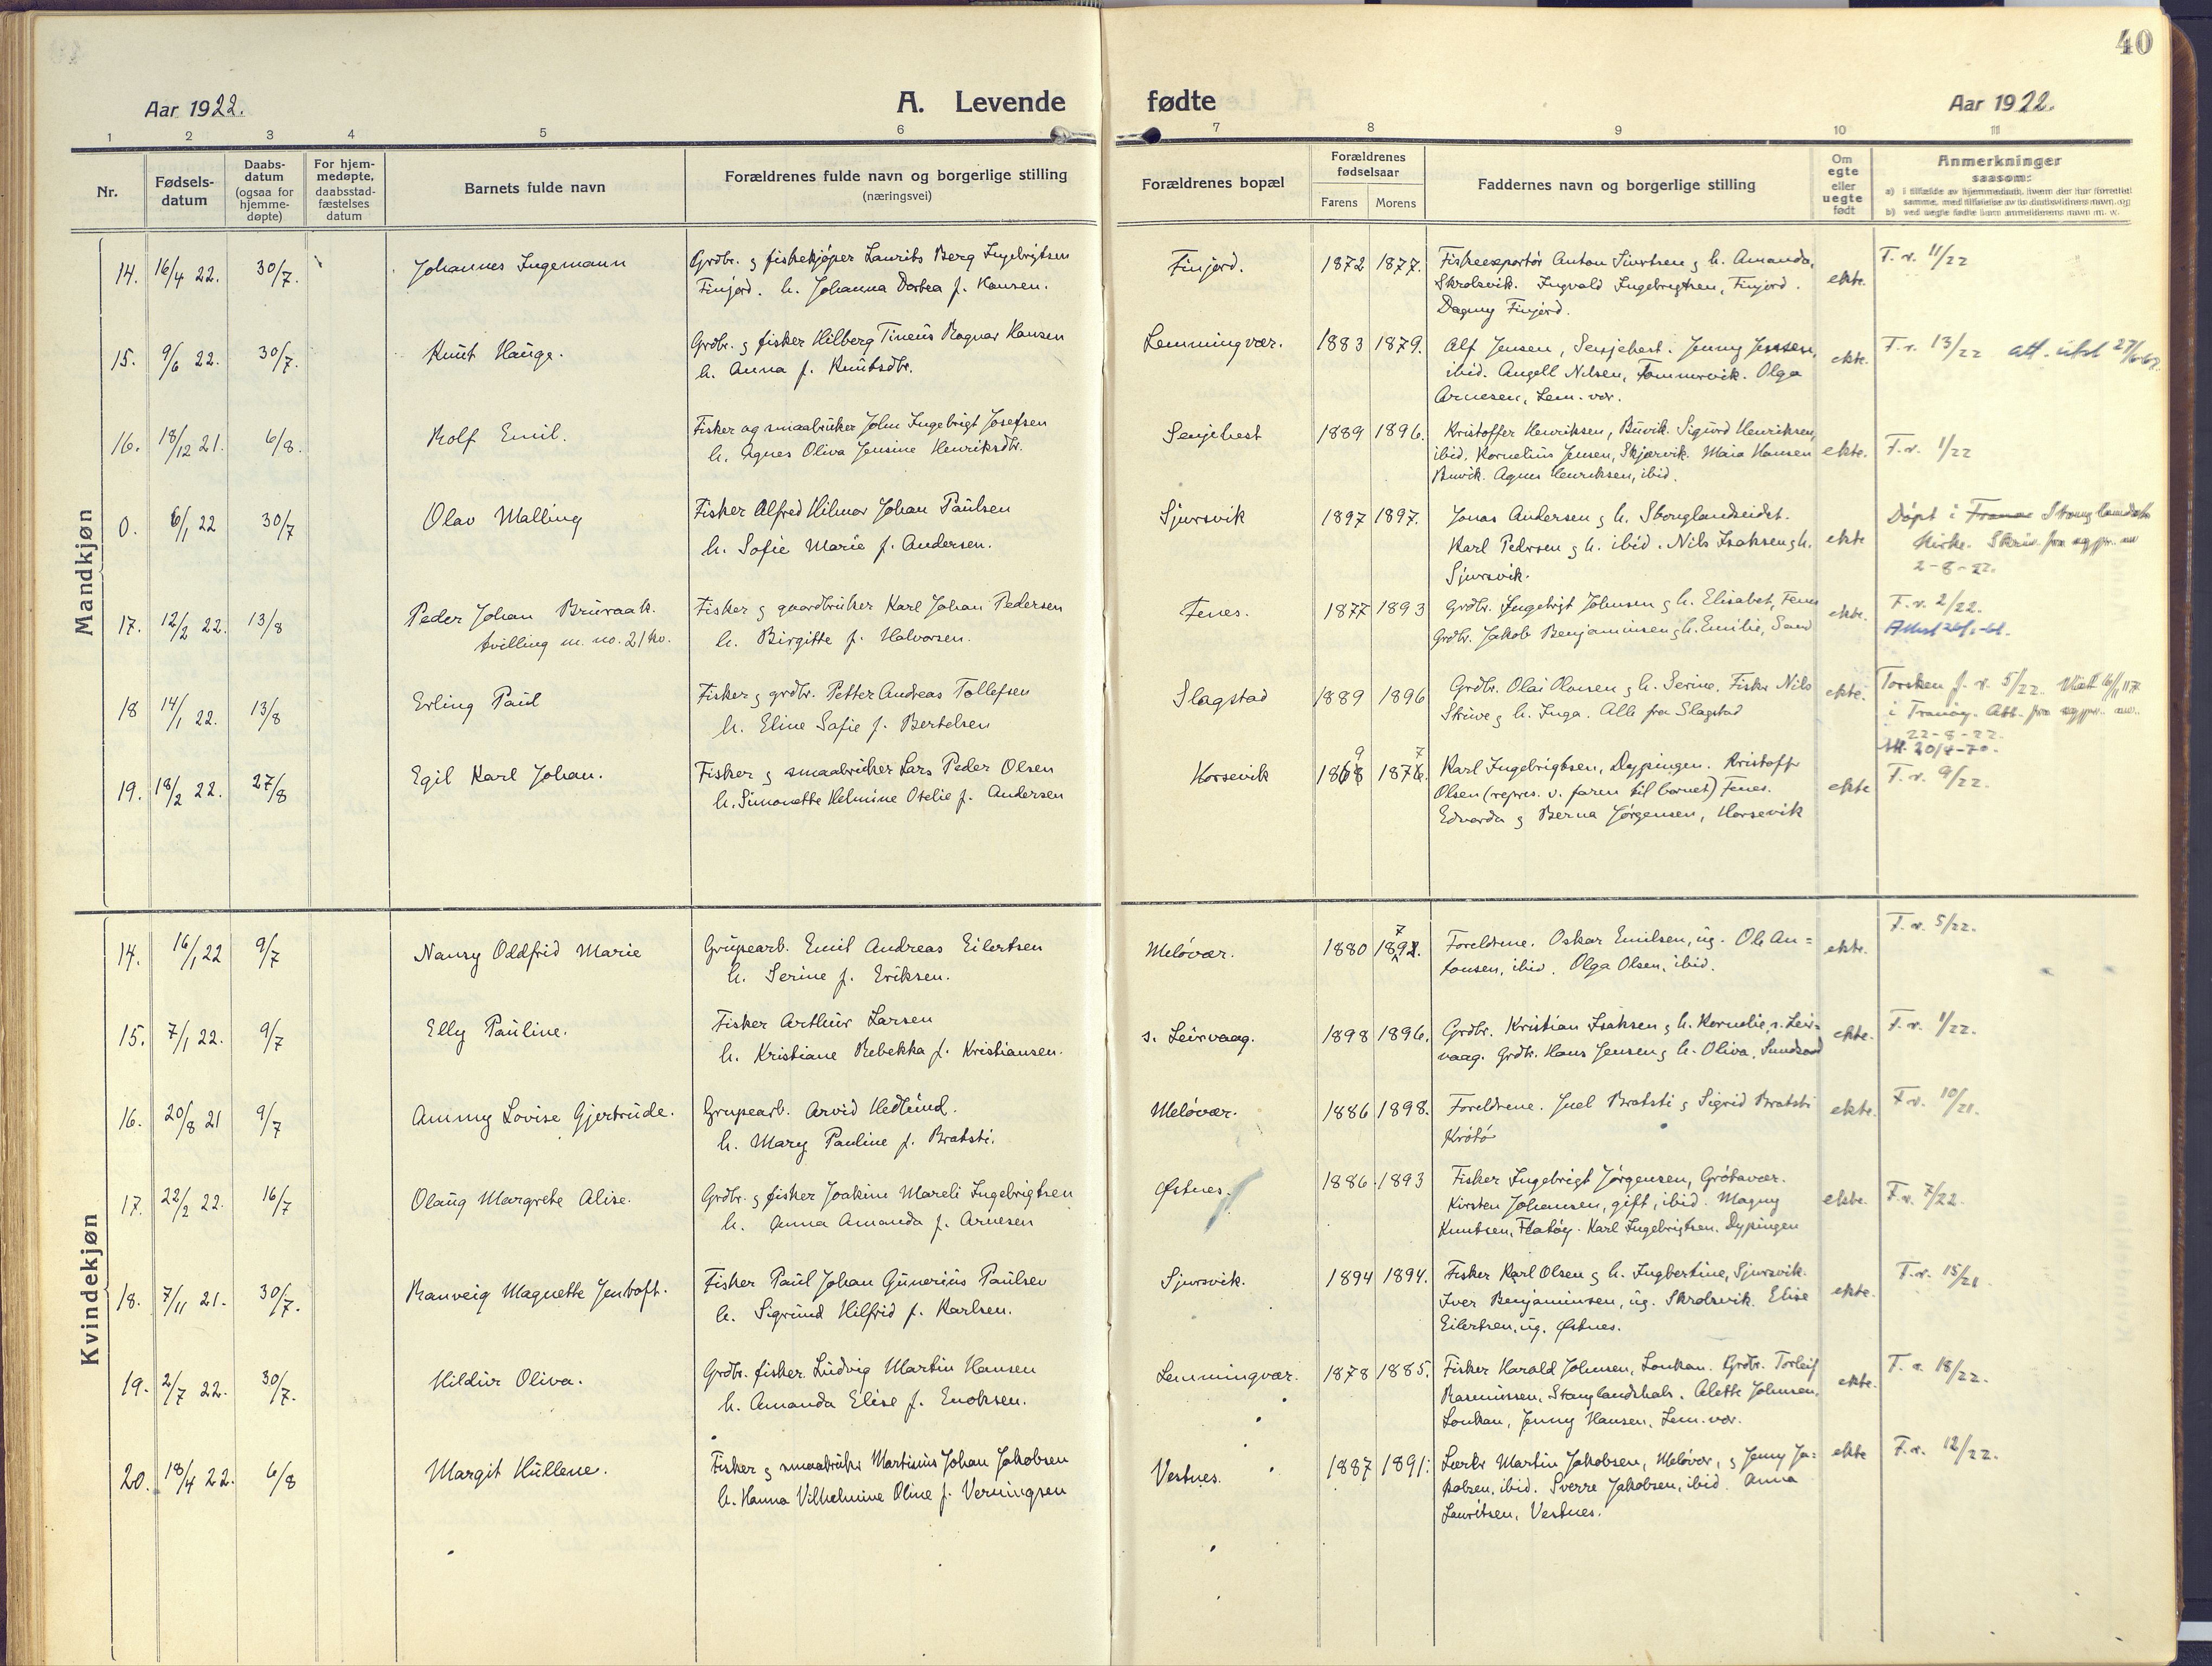 40
Aar 1922.
A. Levende
fødte
Aar 1922.
1 2 3 4 5 6 7 8 9 10 11
Nr.
Fødsels-
datum
Daabs-
datum
(ogsaa for
hjemme-
døpte)
For hjem-
medøpte,
daabsstad-
fæstelses
datum
Barnets fulde navn
Forældrenes fulde navn og borgerlige stilling
(næringsvei)
Forældrenes bopæl
Forældrenes
fødselsaar
Farens Morens
Faddernes navn og borgerlige stilling
Om
egte
eller
uegte
født
Anmerkninger
saasom:
a) i tilfælde av hjemmedaab, hvem der har forrettet
samme, med tilføielse av to daabsvidners navn, og
b) ved uegte fødte barn anmelderens navn m. v.
Mandkjøn
14. 16/4 22. 30/7. Johannes Ingemann
Grdbr. & fiskekjøper Laurits Berg Ingebrigtsen
Finjord. h. Johanna Dortea f. Hansen.
Finjord. 1872 1877.
Fiskeexportør Anton Sivertsen & h. Amanda,
Skrolsvik. Ingvald Ingebrigtsen, Finjord.
Dagny Finjord.
ekte. F. r. 11/22
15. 9/6 22. 30/7. Knut Hauge.
Grdbr. & fisker Hilberg Tineus Ragnar Hansen
h. Anna f. Knutsdtr.
Lemmingvær. 1883 1879.
Alf Jensen, Senjehest. Jenny Jensen,
ibid. Angell Nilsen, Tømmervik. Olga
Arnesen, Lem. vær.
ekte. F. r. 13/22 att. utst 27/6-67.
16. 18/12 21. 6/8. Rolf Emil.
Fisker og smaabruker John Ingebrigt Josefsen
h. Agnes Oliva Jensine Henriksdtr.
Senjehest 1889 1896.
Kristoffer Henriksen, Buvik. Sigurd Henriksen,
ibid. Kornelius Jensen, Skjærvik. Maia Hansen
Buvik. Agnes Henriksen, ibid.
ekte. F. r. 1/22
0. 6/1 22 30/7 Olav Malling
Fisker Alfred Hilmar Johan Paulsen
h. Sofie Marie f. Andersen.
Sjursvik 1897 1897.
Jonas Andersen & h. Stonglandseidet.
Karl Pedersen & h. ibid. Nils Isaksen & h.
Sjursvik.
ekte Døpt i Tranø Stonglandets
Kirke. Skriv fra sogpr. av
2-8-22.
17. 12/2 22. 13/8 Peder Johan Bruraak.
tvilling m. no. 21 kv.
Fisker & gaardbruker Karl Johan Pedersen
h. Birgitte f. Halvorsen.
Fenes. 1877 1893
Grdbr. Ingebrigt Johnsen & h. Elisabet, Fenes
Grdbr. Jakob Benjaminsen & h. Emilie, Sand
ekte. F. r. 2/22.
18 14/1 22. 13/8 Erling Paul
Fisker & grdbr. Petter Andreas Tollefsen
h. Eline Sofie f. Bertelsen
Slagstad 1889 1896
Grdbr. Olai Olausen & h. Serine. Fisker Nils
Skuve & h. Inga. Alle fra Slagstad
ekte. Torsken f. r. 5/22.
i Tranøy. Att. fra sogpr. av
22-8-22.
Att. 20/8-70.
19. 18/2 22. 27/8 Egil Karl Johan.
Fisker & smaabruker Lars Peder Olsen
h. Simonette Helmine Otelie f. Andersen
Korsevik 1868 9 1876. 7
Karl Ingebrigtsen, Dypingen. Kristoffer
Olsen (repres. v. faren til barnet) Fenes.
Edvarda & Berna Jørgensen, Horsevik
ekte F. r. 9/22.
Kvindekjøn
14. 16/1 22 9/7 Nansy Oddfrid Marie
Grupearb. Emil Andreas Eilertsen
h. Serine f. Eriksen.
Meløvær. 1880 1892. 7
Foreldrene. Oskar Emilsen, ug. Ole An=
tonsen, ibid. Olga Olsen, ibid.
ekte. F. r. 5/22.
15. 7/1 22. 9/7 Elly Pauline.
Fisker Arthur Larsen
h. Kristiane Rebekka f. Kristiansen.
s. Leirvaag. 1898 1896.
Grdbr. Kristian Isaksen & h. Kornelie, s. Leir=
vaag. Grdbr. Hans Jensen & h. Oliva, Sundsand
ekte. F. r. 1/22.
16. 20/8 21 9/7 Ammy Lovise Gjertrude.
Grupearb. Arvid Hedlund.
h. Mary Pauline f. Bratsti.
Meløvær. 1886 1898.
Foreldrene. Juel Bratsti & Sigrid Bratsti
Krøtø
ekte. F. r. 10/21.
17. 22/2 22. 16/7 Olaug Margrete Alise.
Grdbr. & fisker Joakim Mareli Ingebrigtsen
h. Anna Amanda f. Arnesen
Østnes. 1886. 1893
Fisker Ingebrigt Jørgensen, Grøtavær.
Kirsten Johansen, gift, ibid. Magny
Knutsen, Flatøy. Karl Ingebrigtsen, Dypingen
ekte. F. r. 7/22
18. 7/11 21. 30/7. Ranveig Magnette Jentoft.
Fisker Paul Johan Gunerius Paulsen
h. Sigrund Hilfrid f. Karlsen.
Sjursvik. 1894 1894.
Fisker Karl Olsen & h. Ingbertine, Sjursvik.
Iver Benjaminsen, ug. Skrolsvik. Elise
Eilertsen, ug. Østnes.
ekte. F. r. 15/21.
19. 2/7 22. 30/7. Hildur Oliva.
Grdbr. fisker Ludvig Martin Hansen
h. Amanda Elise f. Enoksen.
Lemmingvær. 1878 1885.
Fisker Harald Johnsen, Lonkan. Grdbr. Torleif
Rasmussen, Stanglandshals. Alette Johnsen,
Lonkan, Jenny Hansen, Lem. vær.
ekte. F. r. 18/22.
20. 18/4 22. 6/8 Margit Hullene.
Fisker & smaabruker Martinius Johan Jakobsen
h. Hanna Vilhelmine Oline f. Verningsen
Vestnes. 1887 1891.
Lærer Martin Jakobsen, Meløvær, & Jenny Ja=
kobsen, ibid. Sverre Jakobsen, ibid. Anna
Lauritsen, Vestnes.
ekte F. r. 12/22.